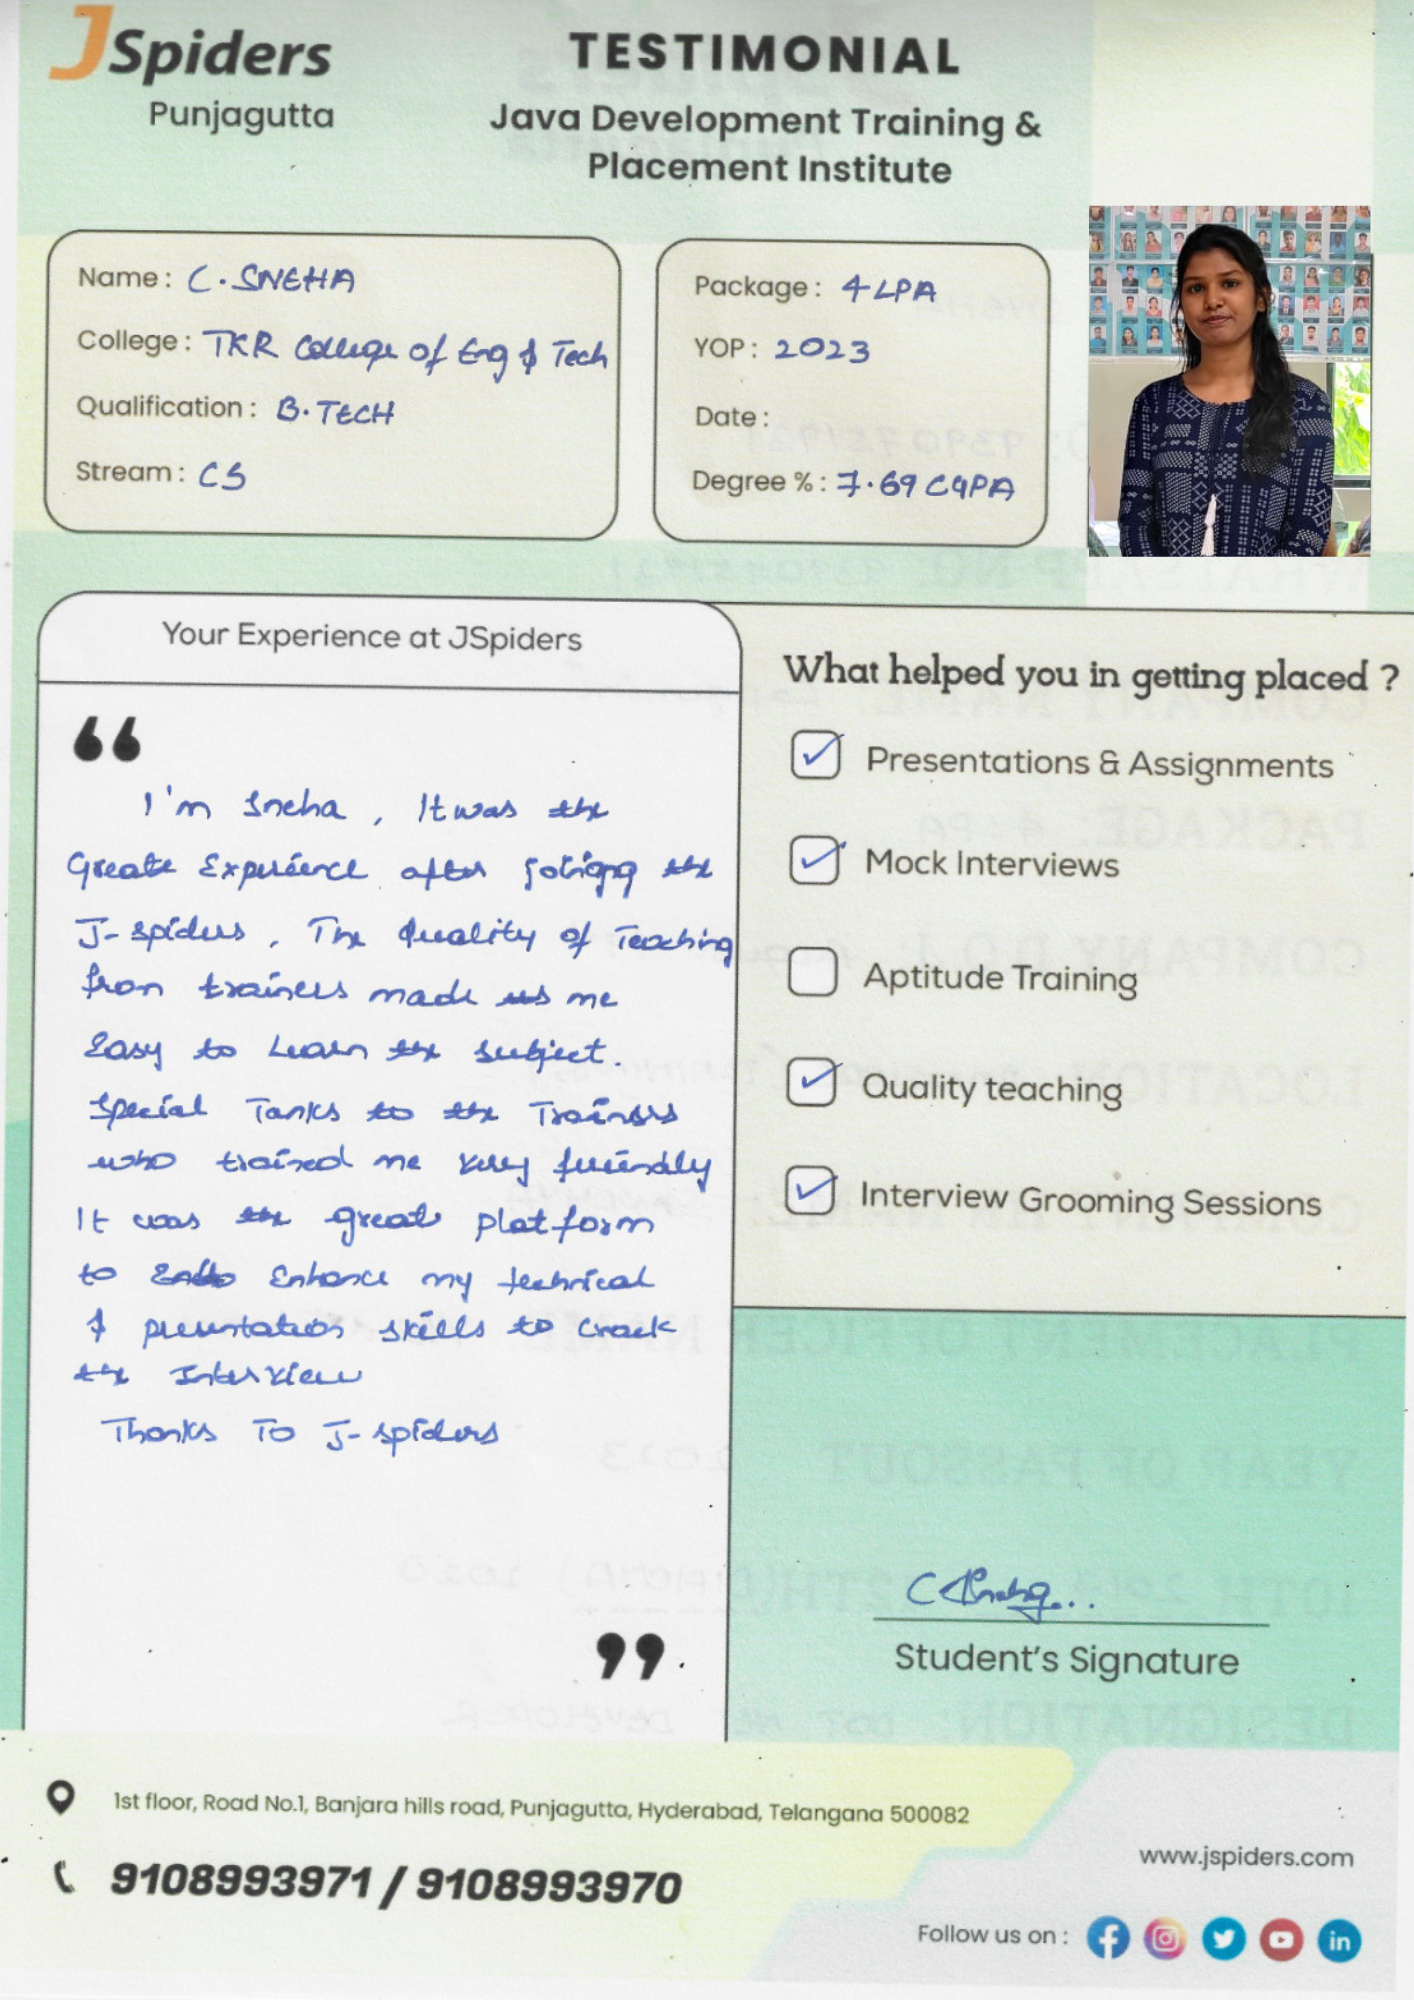 JSpiders
Punjagutta
TESTIMONIAL
Java Development Training &
Placement Institute
Name : C. SNEHA
College : TKR College of Eng & Tech
Qualification : B.TECH
Stream : CS
Package : 4 LPA
YOP : 2023
Date :
Degree % : 7.69 CGPA
Your Experience at JSpiders
“
I'm Sneha, It was the
Greate Experience after joining the
J-spiders, The Quality of Teaching
from trainers made me
Easy to Learn the subject.
Special Tanks to the Trainers
who trained me very friendly
It was the great platform
to Enhance my technical
& presentation skills to crack
the Interview
Thanks To J-spiders
”
What helped you in getting placed ?
Presentations & Assignments
Mock Interviews
Aptitude Training
Quality teaching
Interview Grooming Sessions
Student's Signature
1st floor, Road No.1, Banjara hills road, Punjagutta, Hyderabad, Telangana 500082
9108993971 / 9108993970
www.jspiders.com
Follow us on :